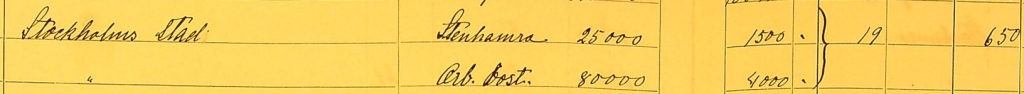 Stockholms Stad Stenhamra 25000 1500 . 19 650
" Arb. Bost. 80000 4000 .